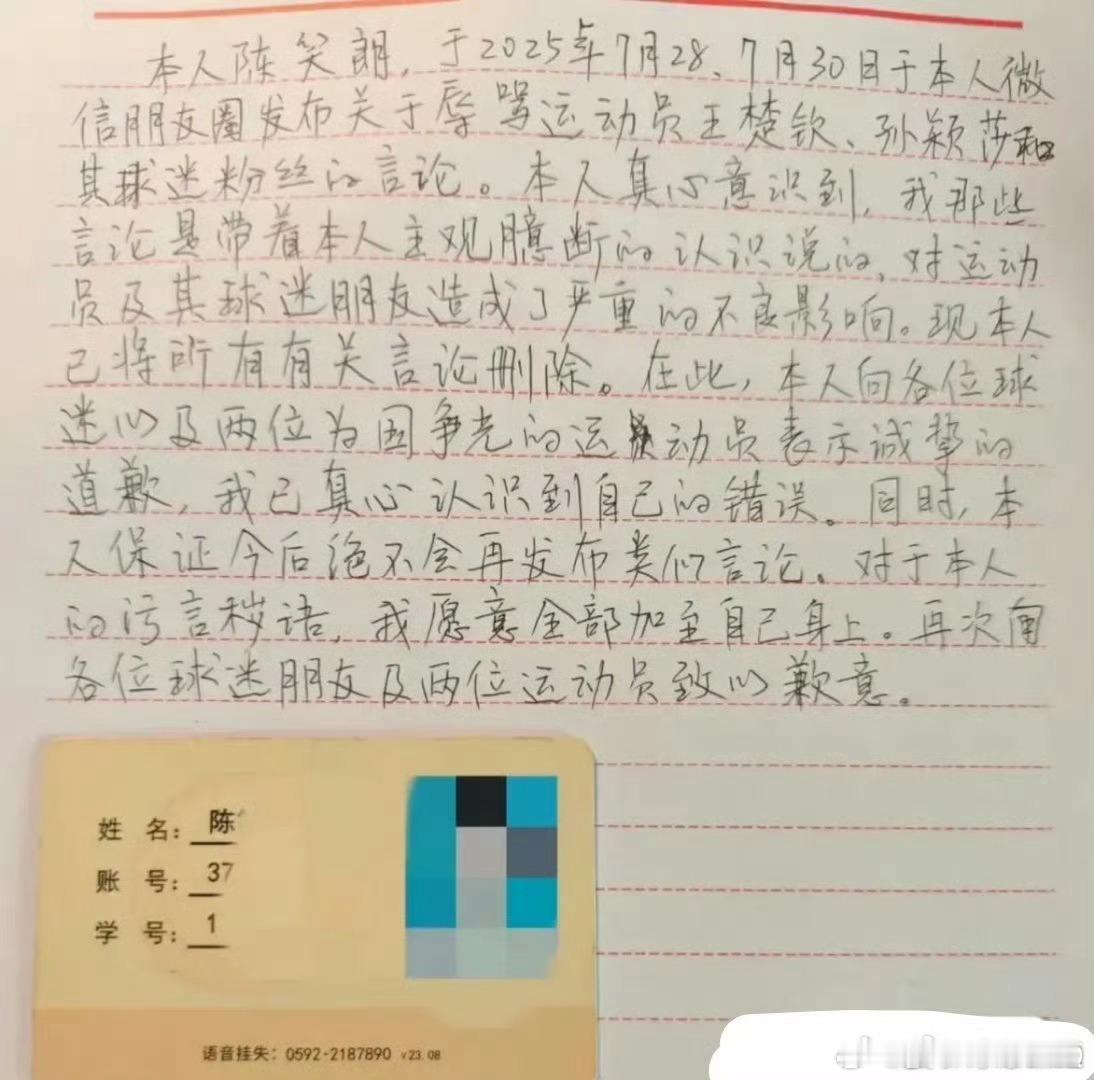 本人陈笑朗，于2025年7月28、7月30日于本人微
信朋友圈发布关于辱骂运动员王楚钦、孙颖莎和
其球迷粉丝的言论。本人真心意识到，我那些
言论是带着本人主观臆断的认识说的，对运动
员及其球迷朋友造成了严重的不良影响。现本人
已将所有有关言论删除。在此，本人向各位球
迷以及两位为国争光的运动员表示诚挚的
道歉，我已真心认识到自己的错误。同时，本
人保证今后绝不会再发布类似言论。对于本人
的污言秽语，我愿意全部加至自己身上。再次向
各位球迷朋友及两位运动员致以歉意。
姓 名：陈
账 号：37
学 号：1
语音挂失：0592-2187890 v23.08